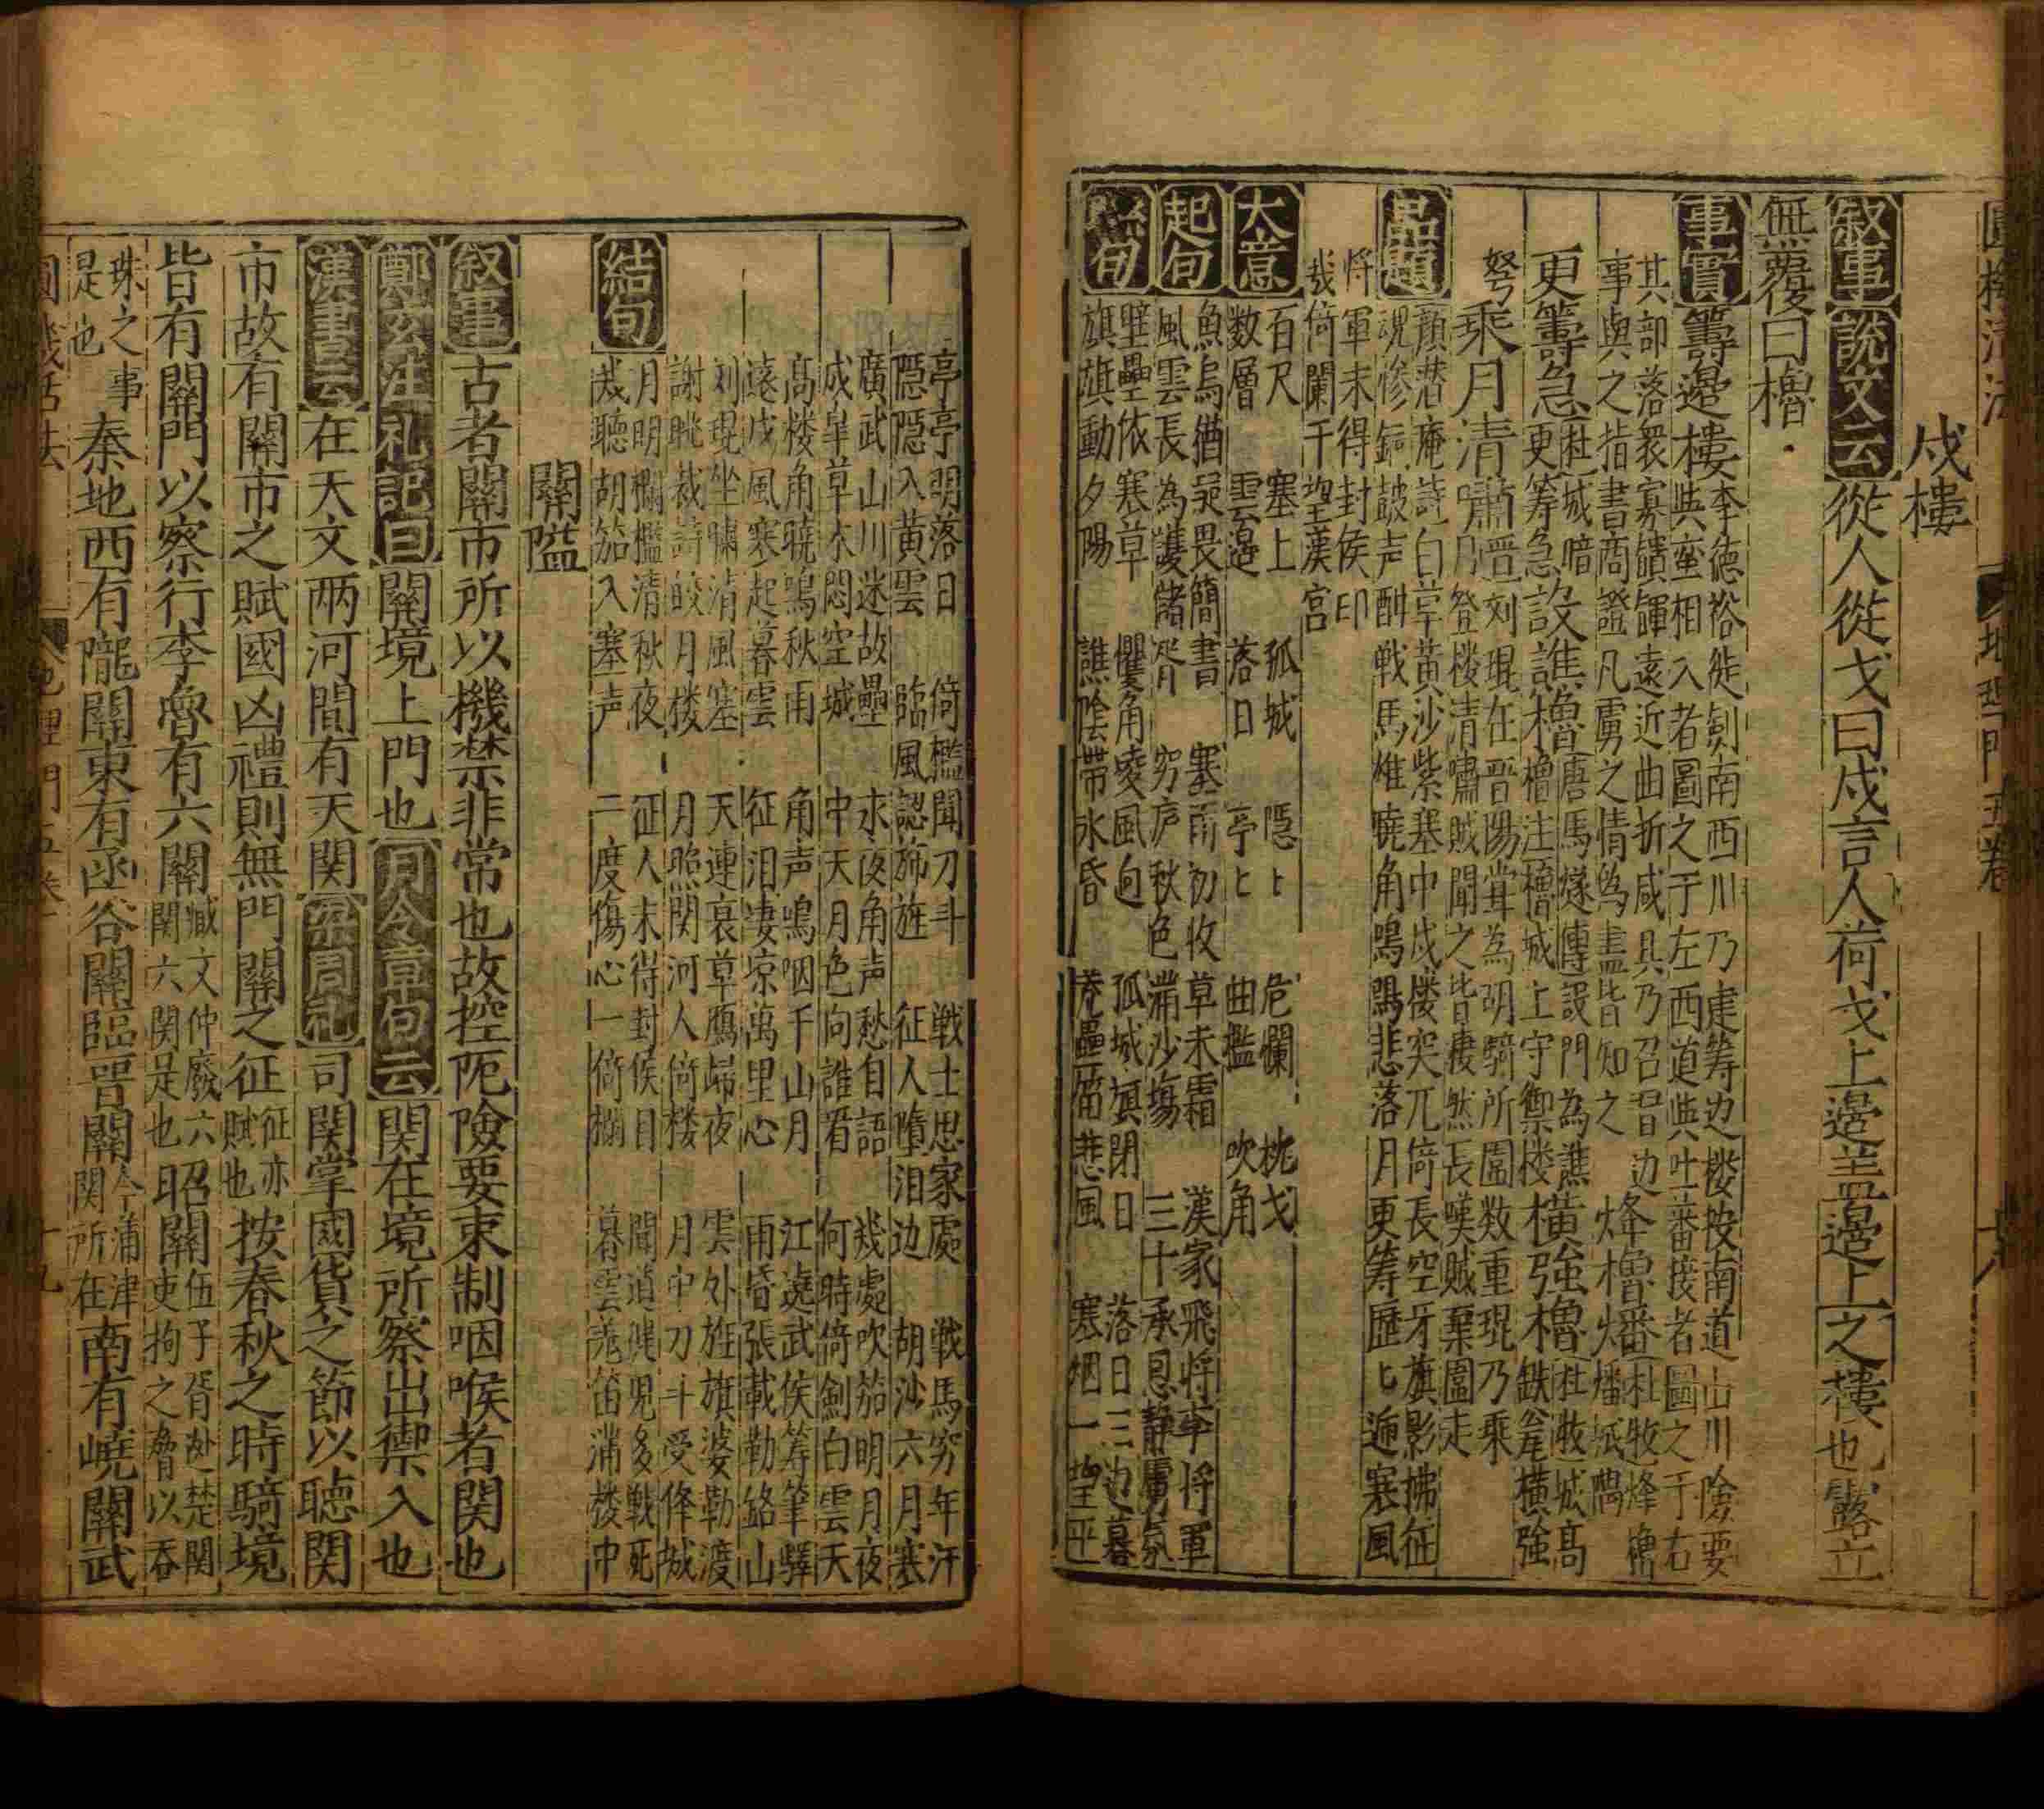 圓機活法
地理門五卷
戍樓
敘事 說文云 從人從戈曰戍言人荷戈上邊盖邊上之樓也露立
無覆曰櫓
事實 籌邊樓 李德裕徙劍南西川乃建筹边楼按南道山川險要
與蛮相入者圖之于左西道與吐蕃接者圖之于右
其部落衆寡饋餫遠近曲折咸具乃召習边
事與之指書商證凡虜之情偽盡皆知之
烽櫓 杜牧烽櫓
更籌急 杜城暗
更筹急 設譙櫓 唐馬燧傳設門為譙
櫓注櫓城上守禦楼 橫強櫓 杜牧城高
鉄瓮橫強
弩 乘月清嘯 晋刘琨在晋陽甞為胡騎所圍数重琨乃乘
月登楼清嘯賊聞之皆悽然長嘆賊棄圍走
品題 顏潜庵詩白草黃沙紫塞中戍楼突兀倚長空牙旗影拂征
鼓声酣戦馬雄曉角鳴鳴悲落月更筹歷ヒ遞寒風
将軍未得封侯印
幾倚闌干望漢宮
大意 百尺 塞上 孤城 隠ヒ 危欄 枕戈
数層 雲邊 落日 亭ヒ 曲檻 吹角
起句 魚烏猶疑畏簡書 塞雨初收草未霜 漢家飛将李将軍
風雲長為護儲胥 穷庐秋色滿沙塲 三十承恩静虜氛
聯句 壁壘依寒草 懼角凌風逈 孤城旗閉日 落日三边暮
旗旗動夕陽 譙陰帶水昏 悲風 寒烟一望平
亭亭明落日 倚檻聞刀斗 戦士思家處 戦馬穷年汗
隠隠入黃雲 臨風認旆旌 征人墮泪边 胡沙六月寒
廣武山川迷故壘 永夜角声愁自語 幾處吹笳明月夜
成皐草木悶空城 中天月色向誰看 何時倚劍白雲天
髙楼角曉鳴秋雨 角声鳴咽千山月 江遶武侯筹筆驛
遠戍風寒起暮雲 征泪凄凉萬里心 雨昏張載勒銘山
刘琨坐嘯清風塞 天連哀草鴈歸夜 雲外旌旗婆勒渡
謝眺裁詩皎月楼 月照関河人倚楼 月中刀斗受降城
結句 月明欄檻清秋夜 征人未得封侯目 聞道健児多戦死
幾聽胡笳入塞声 一度傷心一倚欄 暮雲羗笛滿楼中
關隘
敘事 古者關市所以機禁非常也故控阨險要束制咽喉者関也
鄭玄注礼記曰 關境上門也 月令章句云 関在境所察出禦入也
漢書云 在天文兩河間有天関 梁周礼 司関掌國貨之節以聴関
市故有關市之賦國凶禮則無門關之征 征亦
賦也 按春秋之時騎境
皆有關門以察行李魯有六關 臧文仲廢六
関六関是也 昭關 伍子胥処楚関
吏拘之胥以吞
珠之事
是也 秦地西有隴關東有函谷關臨晋關 今蒲津
関所在 南有嶢關武
圓機活法
地理門五卷
十九